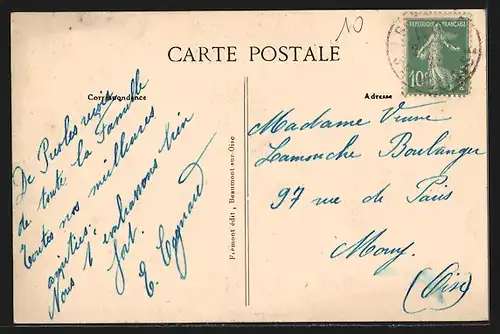 10
CARTE POSTALE
REPUBLIQUE FRANÇAISE
10c
Correspondance
Adresse
De Presles reçois
de toute la Famille
toutes nos meilleures
amitiés.
Nous t'embrassons bien
fort.
Frémont édit., Beaumont-sur-Oise
Madame Veuve
Lamonche Boulanger
97 rue de Paris
Mouy
(Oise)